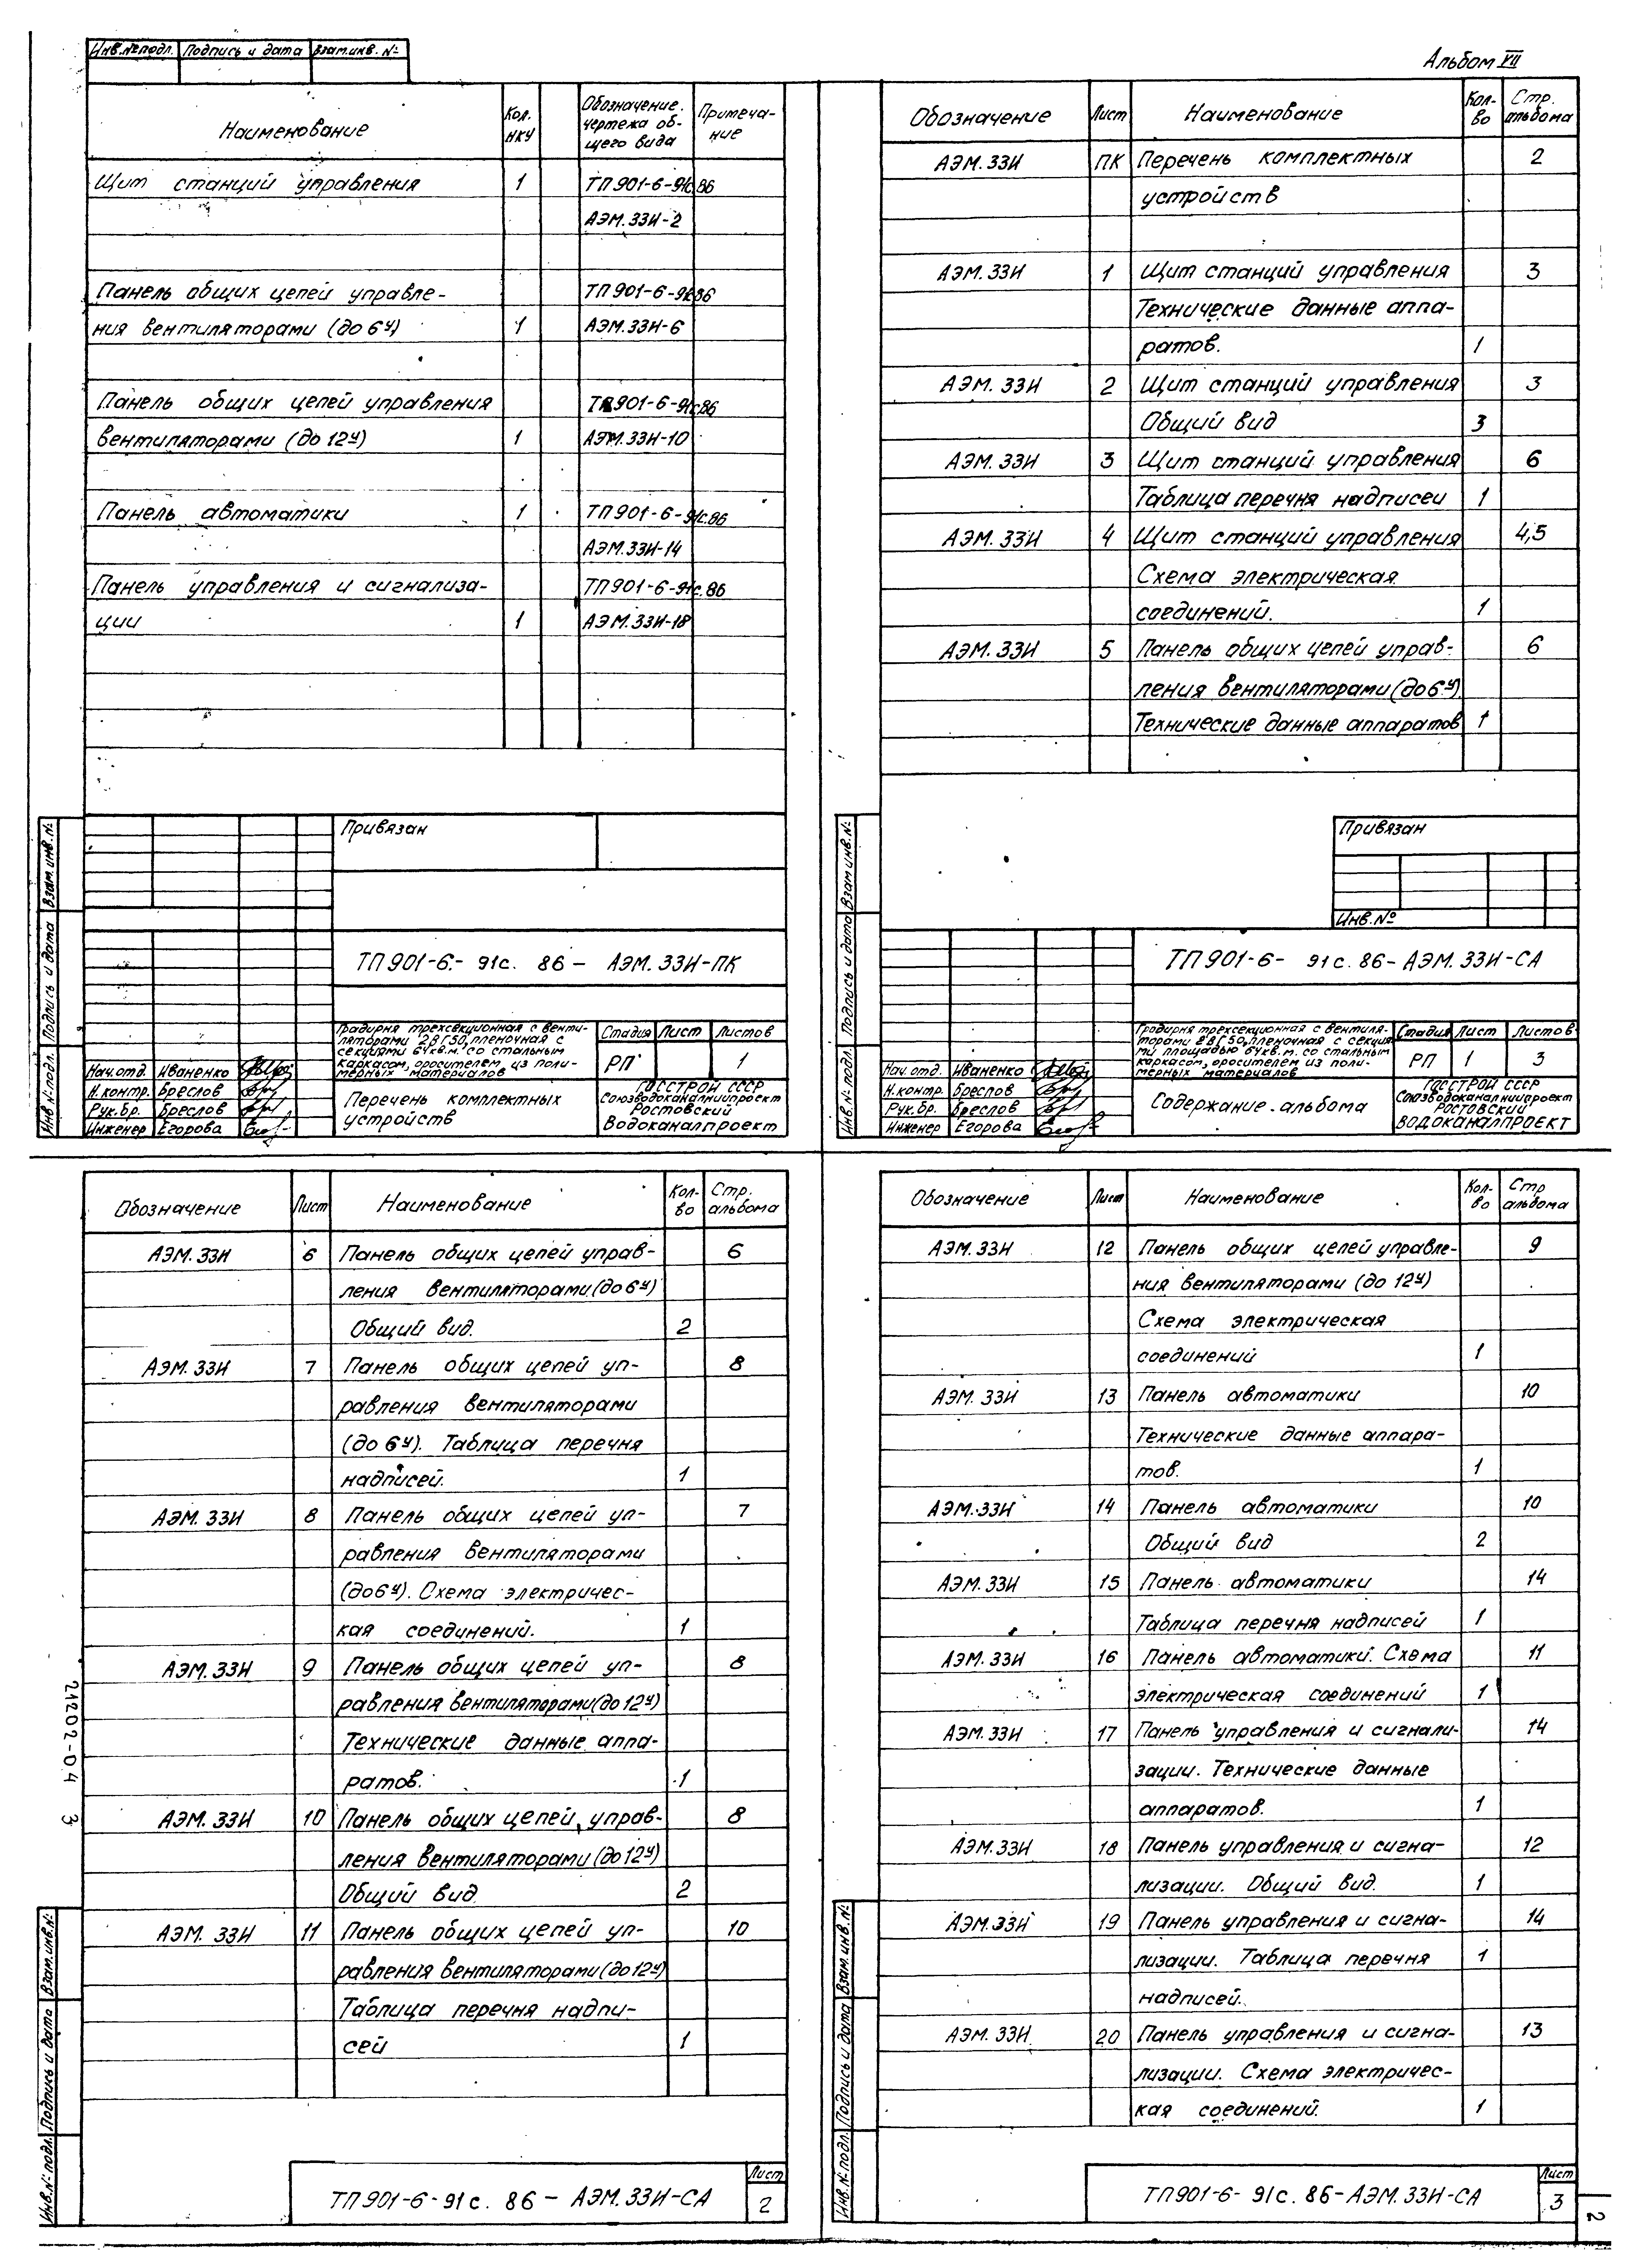 Альбом VII
Инв.№подл. Подпись и дата Взам.инв.№
Наименование Кол. НКУ Обозначение чертежа общего вида Примечание
Щит станций управления 1 ТП901-6-91с.86
АЭМ.33И-2
Панель общих цепей управле-
ТП901-6-91с.86
ния вентиляторами (до 6ч) 1 АЭМ.33И-6
Панель общих цепей управления ТП901-6-91с.86
вентиляторами (до 12ч) 1 АЭМ.33И-10
Панель автоматики 1 ТП901-6-91с.86
АЭМ.33И-14
Панель управления и сигнализа- ТП901-6-91с.86
ции 1 АЭМ.33И-18
Привязан
Взам.инв.№
Подпись и дата
Инв.№подл.
ТП901-6.- 91с. 86 – АЭМ.33И-ПК
Градирня трехсекционная с венти-
ляторами 2ВГ50, пленочная с
секциями 64кв.м. со стальным
каркасом, оросителем из поли-
мерных материалов
Стадия Лист Листов
РП 1
Нач.отд. Иваненко
Н.контр. Бреслов
Рук.бр. Бреслов
Инженер Егорова
Перечень комплектных
устройств
ГОССТРОЙ СССР
Союзводоканалниипроект
Ростовский
Водоканалпроект
Обозначение Лист Наименование Кол-во Стр. альбома
АЭМ.33И ПК Перечень комплектных 2
устройств
АЭМ.33И 1 Щит станций управления 3
Технические данные аппа-
ратов. 1
АЭМ.33И 2 Щит станций управления 3
Общий вид 3
АЭМ.33И 3 Щит станций управления 6
Таблица перечня надписеи 1
АЭМ.33И 4 Щит станций управления 4,5
Схема электрическая
соединений. 1
АЭМ.33И 5 Панель общих цепей управ- 6
ления вентиляторами (до 6ч)
Технические данные аппаратов 1
Привязан
Инв.№
Взам.инв.№
Подпись и дата
Инв.№подл.
ТП901-6- 91с. 86-АЭМ.33И-СА
Градирня трехсекционная с вентиля-
торами 2ВГ50, пленочная с секция
ми площадью 64кв.м. со стальным
каркасом, оросителем из поли-
мерных материалов
Стадия Лист Листов
РП 1 3
Нач.отд. Иваненко
Н.контр. Бреслов
Рук.бр. Бреслов
Инженер Егорова
Содержание альбома
ГОССТРОЙ СССР
Союзводоканалниипроект
Ростовский
Водоканалпроект
Обозначение Лист Наименование Кол-во Стр. альбома
АЭМ.33И 6 Панель общих цепей управ- 6
ления вентиляторами (до 6ч)
Общий вид. 2
АЭМ.33И 7 Панель общих цепей уп- 8
равления вентиляторами
(до 6ч). Таблица перечня
надписей. 1
АЭМ.33И 8 Панель общих цепей уп- 7
равления вентиляторами
(до 6ч). Схема электричес-
кая соединений. 1
АЭМ.33И 9 Панель общих цепей уп- 8
равления вентиляторами (до 12ч)
Технические данные аппа-
ратов. 1
АЭМ.33И 10 Панель общих цепей управ- 8
ления вентиляторами (до 12ч)
Общий вид. 2
АЭМ.33И 11 Панель общих цепей уп- 10
равления вентиляторами (до 12ч)
Таблица перечня надпи-
сей 1
21202-04 3
Взам.инв.№
Подпись и дата
Инв.№подл.
ТП901-6-91с. 86 – АЭМ.33И-СА
Лист
2
Обозначение Лист Наименование Кол-во Стр альбома
АЭМ.33И 12 Панель общих цепей управле- 9
ния вентиляторами (до 12ч)
Схема электрическая
соединений 1
АЭМ.33И 13 Панель автоматики 10
Технические данные аппара-
тов. 1
АЭМ.33И 14 Панель автоматики 10
Общий вид 2
АЭМ.33И 15 Панель автоматики 14
Таблица перечня надписей 1
АЭМ.33И 16 Панель автоматики. Схема 11
электрическая соединений 1
АЭМ.33И 17 Панель управления и сигнали- 14
зации. Технические данные
аппаратов. 1
АЭМ.33И 18 Панель управления и сигна- 12
лизации. Общий вид. 1
АЭМ.33И 19 Панель управления и сигна- 14
лизации. Таблица перечня 1
надписей.
АЭМ.33И 20 Панель управления и сигна- 13
лизации. Схема электричес-
кая соединений. 1
Взам.инв.№
Подпись и дата
Инв.№подл.
ТП901-6- 91с. 86-АЭМ.33И-СА
Лист
3
2